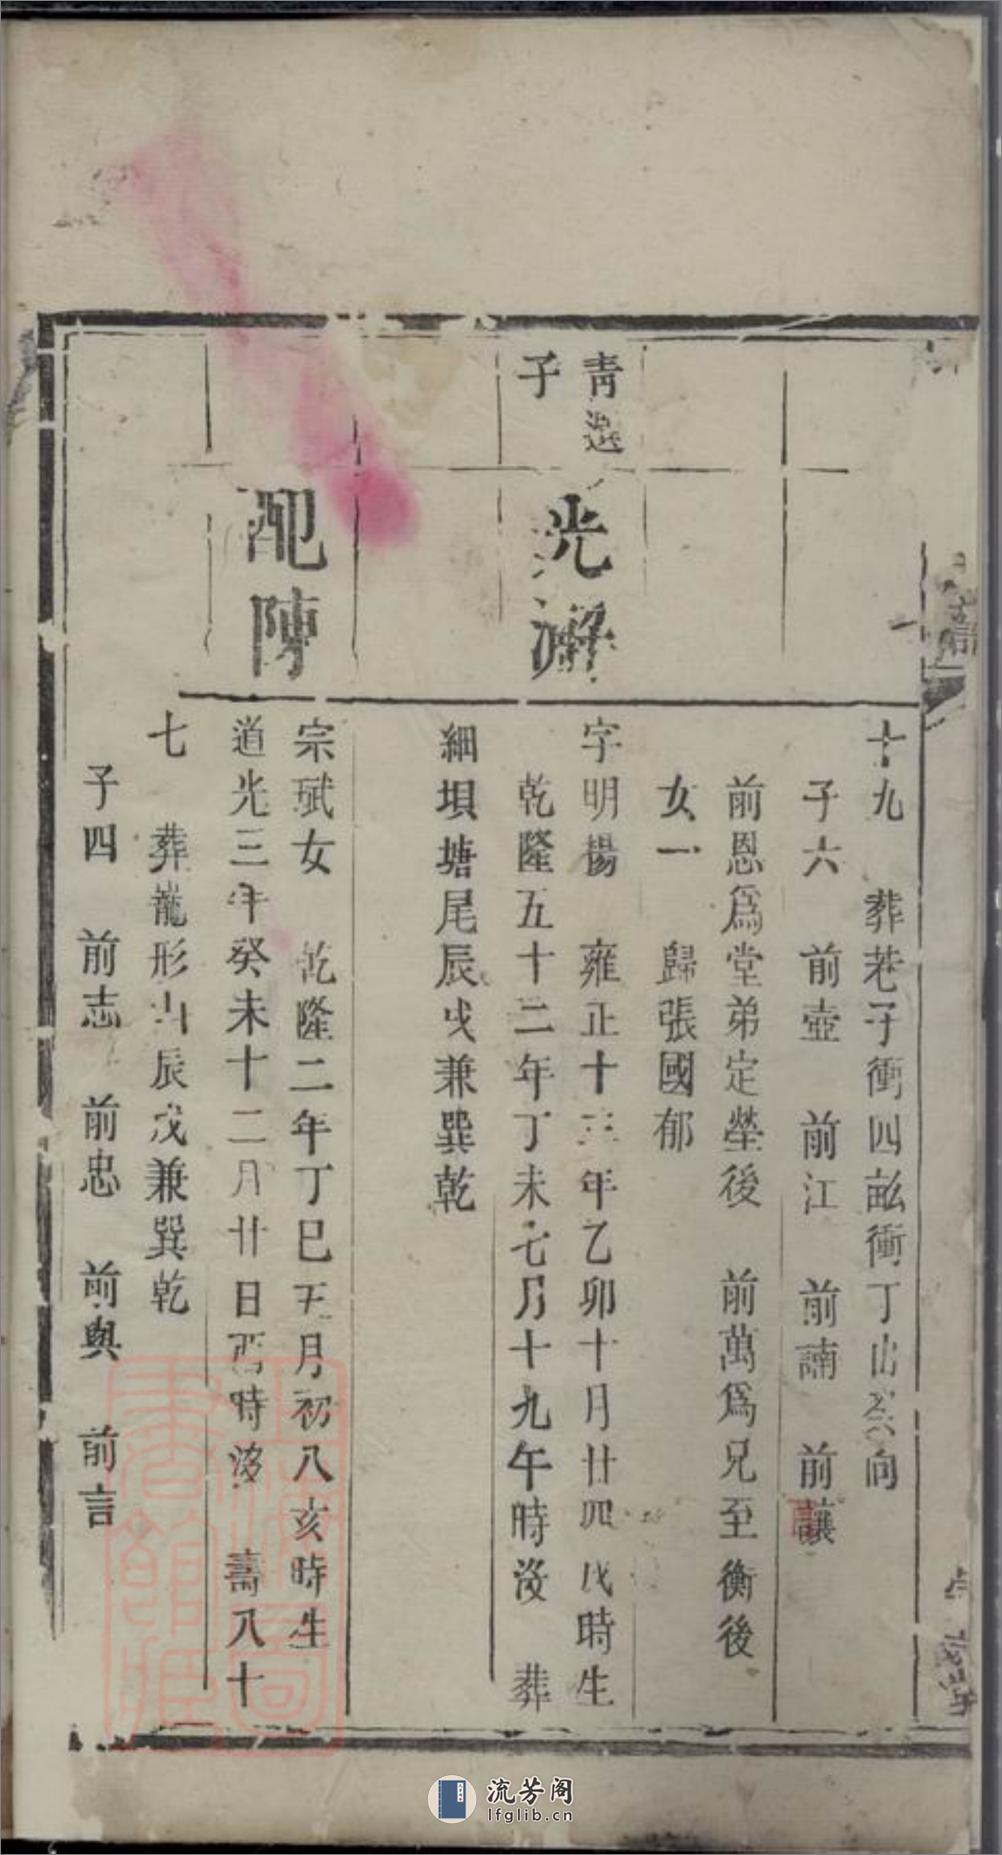 十九 葬老子衝四畝衝丁山癸向
子六 前壺 前江 前諵 前讓
前恩爲堂弟定塋後 前萬爲兄至衡後
女一 歸張國郁
青選
子
光澥
字明楊 雍正十三年乙卯十月廿四戌時生
乾隆五十二年丁未七月十九午時沒 葬
細垻塘尾辰戌兼巽乾
配陳
宗斌女 乾隆二年丁巳五月初八亥時生
道光三年癸未十二月廿日酉時沒 壽八十
七 葬龍形山辰戌兼巽乾
子四 前志 前忠 前與 前言
上海圖書館藏
流芳阁
lfglib.cn